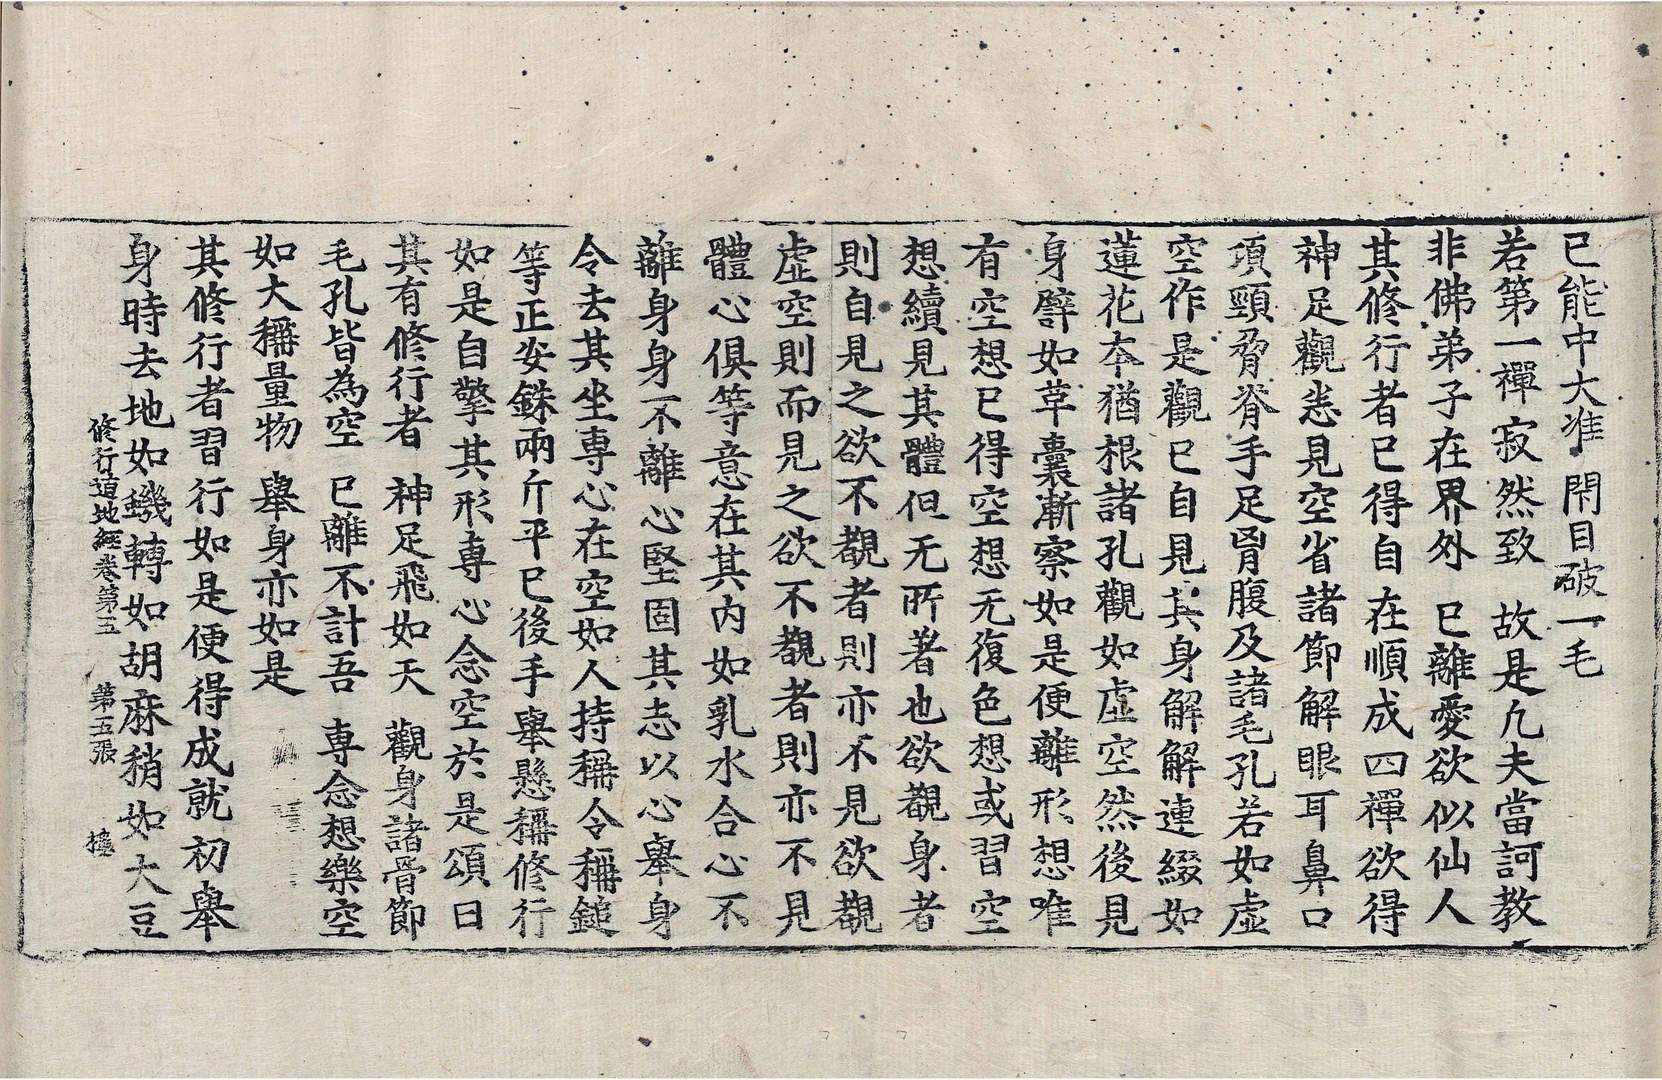 已能中大准 閇目破一毛
若第一禪寂然致 故是凢夫當訶教
非佛弟子在界外 已離愛欲似仙人
其修行者已得自在順成四禪欲得
神足觀悉見空省諸節解眼耳鼻口
項頸脅脊手足胷腹及諸毛孔若如虛
空作是觀已自見其身解解連綴如
蓮花本猶根諸孔觀如虛空然後見
身譬如革囊漸察如是便離形想唯
有空想已得空想无復色想或習空
想續見其體但无所著也欲觀身者
則自見之欲不觀者則亦不見欲觀
虛空則而見之欲不觀者則亦不見
體心俱等意在其內如乳水合心不
離身身不離心堅固其志以心舉身
令去其坐專心在空如人持稱令稱鎚
等正安銖兩斤平已後手舉懸稱修行
如是自擎其形專心念空於是頌曰
其有修行者 神足飛如天 觀身諸骨節
毛孔皆為空 已離不計吾 專念想樂空
如大稱量物 舉身亦如是
其修行者習行如是便得成就初舉
身時去地如蟣轉如胡麻稍如大豆
修行道地經卷第五 第五張